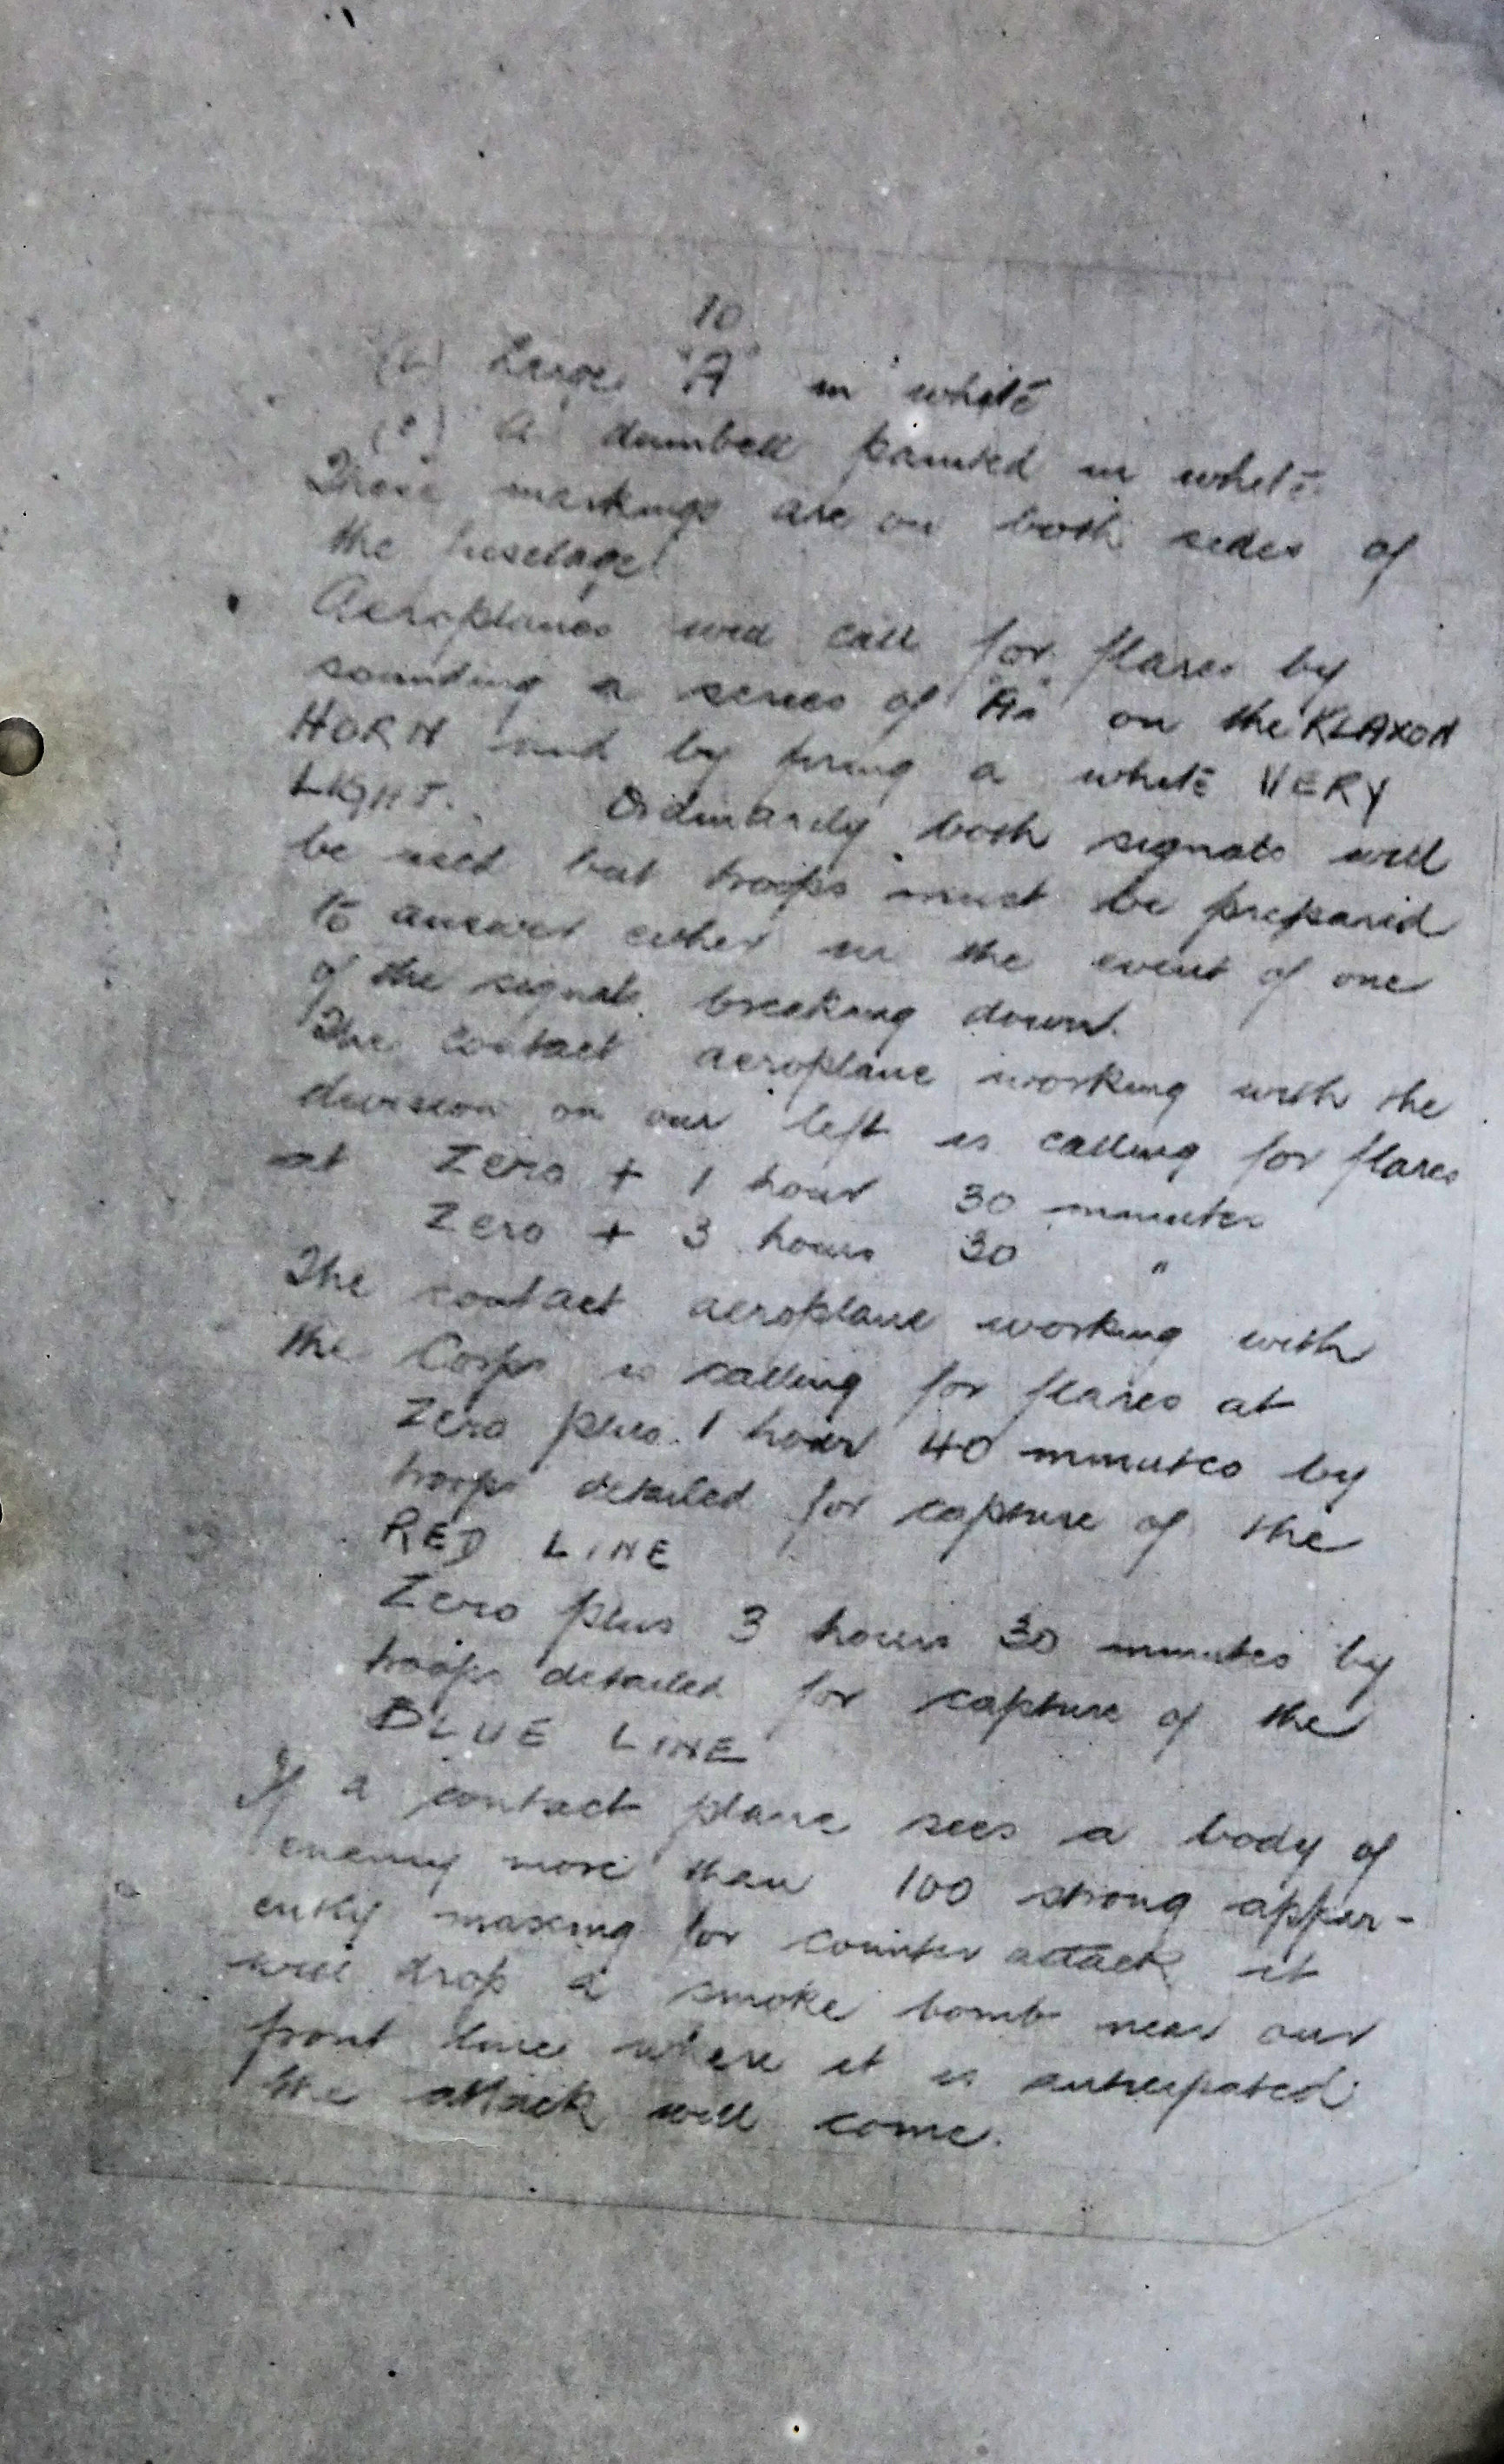 10
Large "A" in white
A dumbell painted in white
These markings are on both sides of
the fuselage.
Aeroplanes will call for flares by
sounding a series of "A's" on the KLAXON
HORN and by firing a white VERY
LIGHT. Ordinarily both signals will
be used but troops must be prepared
to answer either in the event of one
of the signals breaking down.
The contact aeroplane working with the
division on our left is calling for flares
at Zero + 1 hour 30 minutes
Zero + 3 hours 30 "
The contact aeroplane working with
the Corps is calling for flares at
Zero plus 1 hour 40 minutes by
troops detailed for capture of the
RED LINE
Zero plus 3 hours 30 minutes by
troops detailed for capture of the
BLUE LINE
If a contact plane sees a body of
enemy more than 100 strong appar-
ently massing for counter attack it
will drop a smoke bomb near our
front line where it is anticipated
the attack will come.